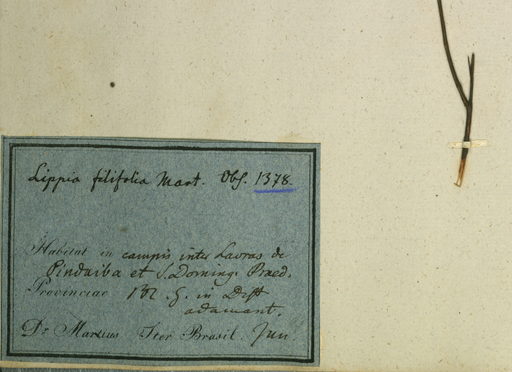 Lippia filifolia Mart. Obs. 1378.
Habitat in campis inter Lavras de
Pindaiba et S. Doming. Praed.
Provinciae in Distr
adamant.
Dr. Martius Iter Brasil. Jun